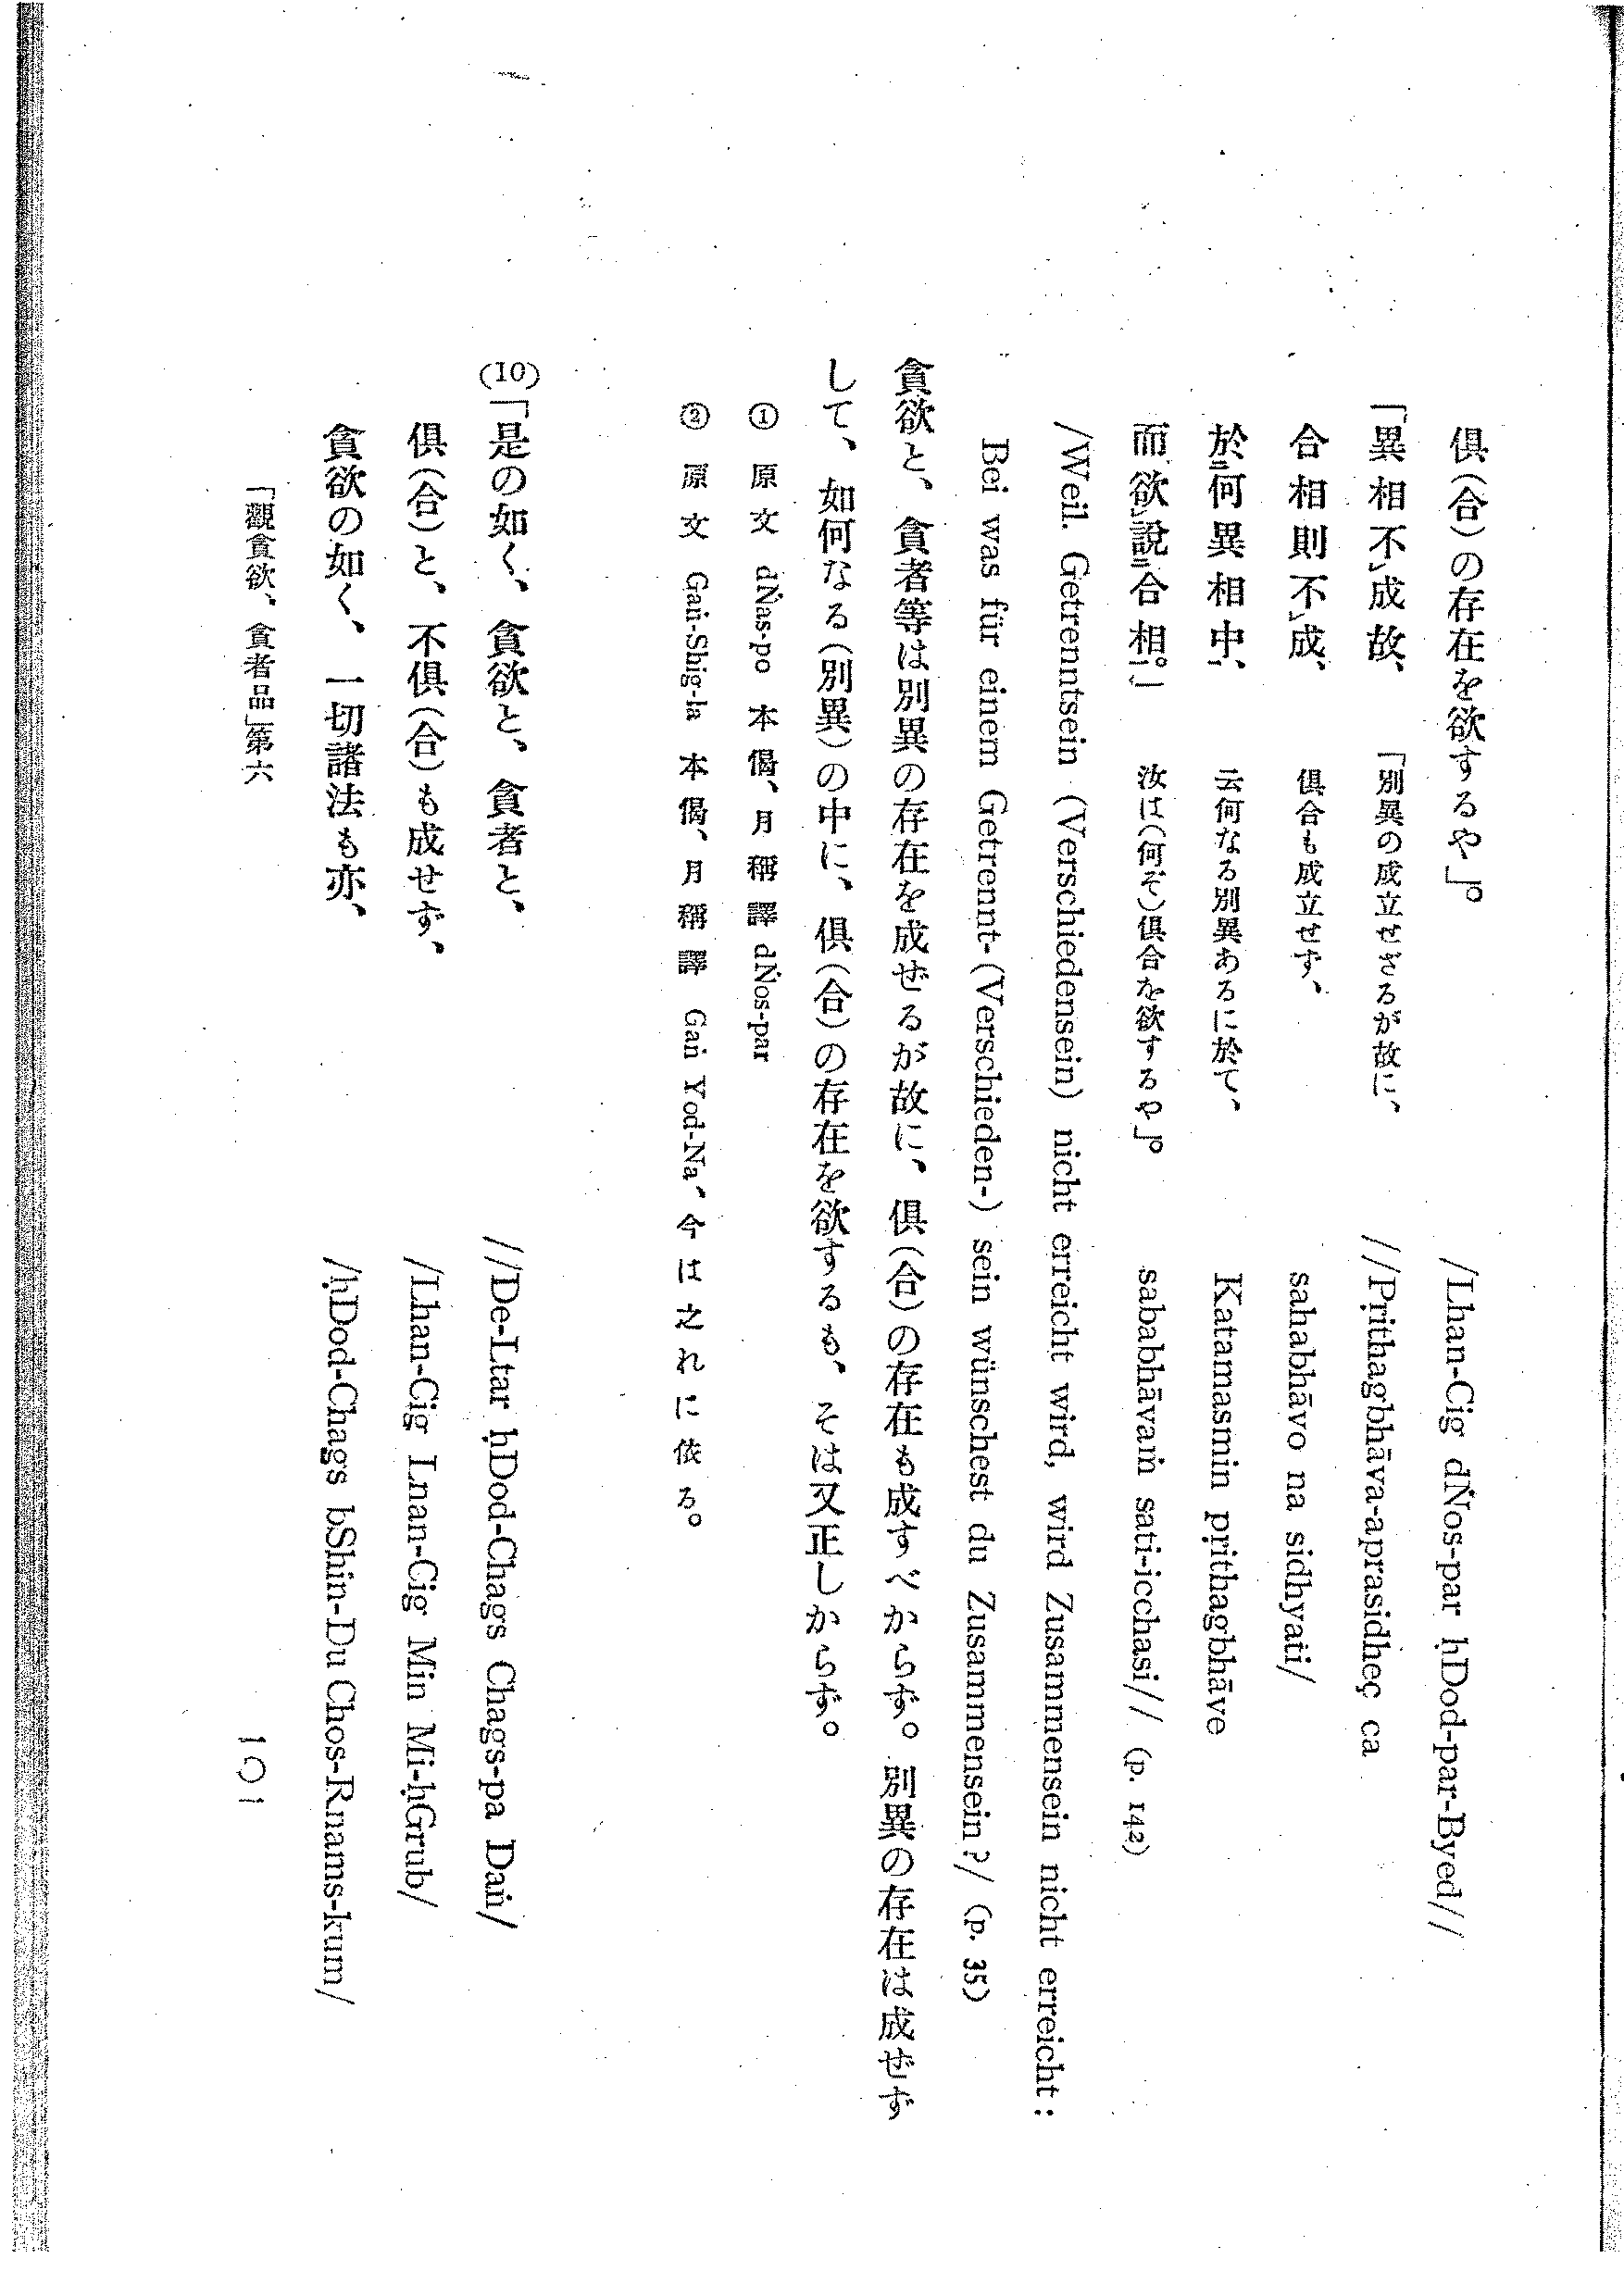 俱(合)の存在を欲するや」。 /Lhan-Cig dṄos-par ḥDod-par-Byed//
「異相不㆑成故、 「別異の成立せざるが故に、 //Pṛithagbhāva-aprasidheç ca
合相則不㆑成、 俱合も成立せず、 sahabhāvo na sidhyati/
於㆓何異相中㆒、 云何なる別異あるに於て、 Katamasmin pṛithagbhāve
而欲㆑說㆓合相㆒。」 汝は(何ぞ)俱合を欲するや」。 sababhāvaṁ sati-icchasi// (p. 142)
/Weil. Getrenntsein (Verschiedensein) nicht erreicht wird, wird Zusammensein nicht erreicht:
Bei was für einem Getrennt-(Verschieden-) sein wünschest du Zusammensein?/ (p. 35)
貪欲と、貪者等は別異の存在を成ぜるが故に、俱(合)の存在も成すべからず。別異の存在は成ぜず
して、如何なる(別異)の中に、俱(合)の存在を欲するも、そは又正しからず。
① 原文 dṄas-po 本偈、月稱譯 dṄos-par
② 原文 Gaṅ-Shig-la 本偈、月稱譯 Gaṅ Yod-Na、今は之れに依る。
(10)「是の如く、貪欲と、貪者と、 //De-Ltar ḥDod-Chags Chags-pa Daṅ/
俱(合)と、不俱(合)も成せず、 /Lhan-Cig Lnan-Cig Min Mi-ḥGrub/
貪欲の如く、一切諸法も亦、 /ḥDod-Chags bShin-Du Chos-Rnams-kum/
「觀貪欲、貪者品」第六 一〇一